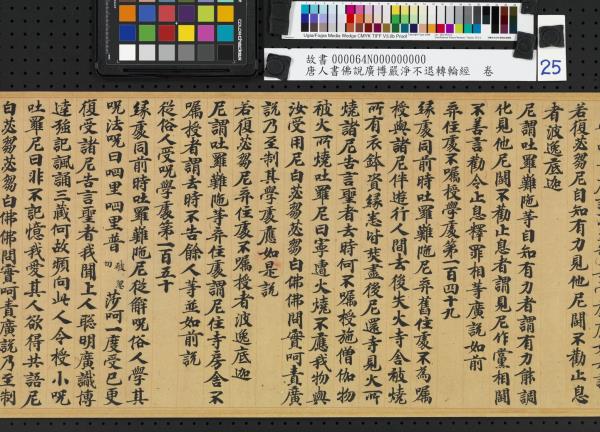 Uipa/Fogra Media Wedge CMYK TIFF V3.0b Proof
colorchecker
故書 000064N000000000
唐人書佛說廣博嚴淨不退轉輪經 卷
25
若復苾芻尼自知有力見他尼鬪不勸止息
者波逸底迦
尼謂吐羅難陁等自知有力者謂有力能調
化見他尼鬪不勸止息者謂見尼作黨相鬪
不善言勸令止息釋罪相等廣說如前
弃住處不囑授學處第一百四十九
緣處同前時吐羅難陁尼弃舊住處不為囑
授與諸尼伴遊行人間去後失火寺舍被燒
所有衣鉢資緣悉皆焚盡後尼還寺見火所
燒諸尼告言聖者去時何不囑授施僧伽物
被火所燒吐羅尼曰寧遭火燒不應我物與
汝受用尼白苾芻苾芻白佛佛問實呵責廣
說乃至制其學處應如是說
若復苾芻尼弃住處不囑授者波逸底迦
尼謂吐羅難陁等弃住處謂尼住寺房舍不
囑授者謂去時不告餘人等並如前說
從俗人受呪學處第一百五十
緣處同前時吐羅難陁尼從解呪俗人學其
呪法呪曰呬里呬里普莎呵一度受已更
復受諸尼告言聖者我聞上人聰明廣識博
達強記諷誦三藏何故煩向此人令授小呪
吐羅尼曰非不記憶我愛其人欲得共語尼
白苾芻苾芻白佛佛問實呵責廣說乃至制